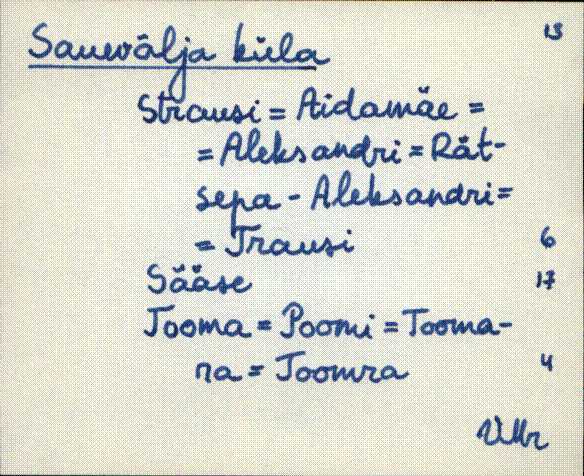 13
Sauevälja küla
Strausi = Aidamäe =
= Aleksandri = Rät-
sepa - Aleksandri =
= Trausi 6
Sääse 17
Tooma = Poomi = Tooma-
ra = Toomra 4